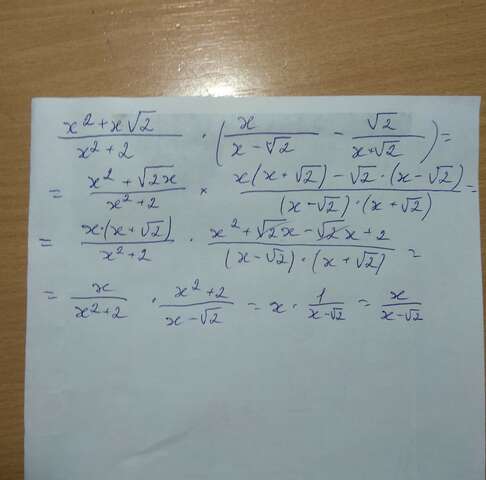 (x² + x√2)/(x² + 2) · (x/(x − √2) − √2/(x + √2)) =
= (x² + √2x)/(x² + 2) × (x(x + √2) − √2 · (x − √2))/((x − √2) · (x + √2)) =
= (x · (x + √2))/(x² + 2) · (x² + √2x − √2x + 2)/((x − √2) · (x + √2)) =
= x/(x² + 2) · (x² + 2)/(x − √2) = x · 1/(x − √2) = x/(x − √2)